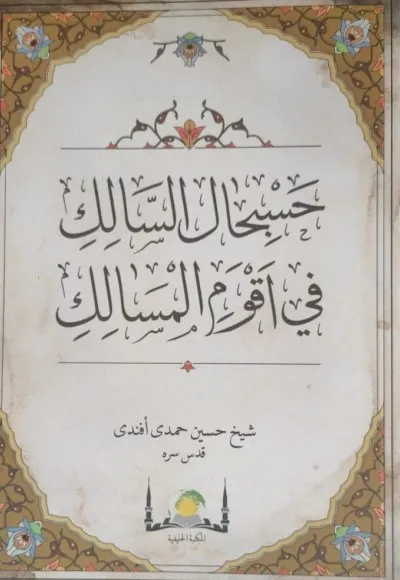 حَسْبِحَال السَّالِكِ
فِي اَقْوَمِ الْمَسَالِكِ
شيخ حسين حمدى أفندى
قدس سره
المكتبة الحنيفية